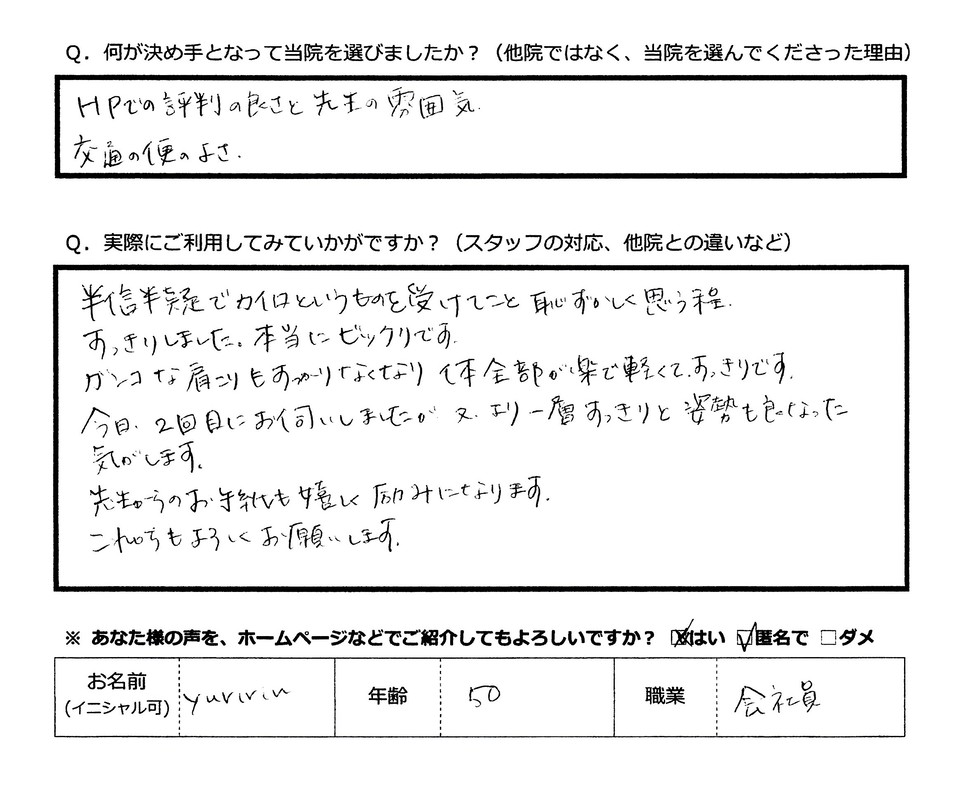 Q．何が決め手となって当院を選びましたか？（他院ではなく、当院を選んでくださった理由）
HPでの評判の良さと先生の雰囲気.
交通の便のよさ.
Q．実際にご利用してみていかがですか？（スタッフの対応、他院との違いなど）
半信半疑でカイロというものを受けてこと恥ずかしく思う程.
すっきりしました。本当にビックリです.
ガンコな肩こりもすっかりなくなり体全部が楽で軽くて、すっきりです.
今日、2回目にお伺いしましたが又、より一層すっきりと姿勢も良くなった
気がします。
先生からのお手紙も嬉しく励みになります.
これからもよろしくお願いします.
※ あなた様の声を、ホームページなどでご紹介してもよろしいですか？ ☒はい ☑匿名で □ダメ
お名前 yuririn 年齢 50 職業 会社員
(イニシャル可)